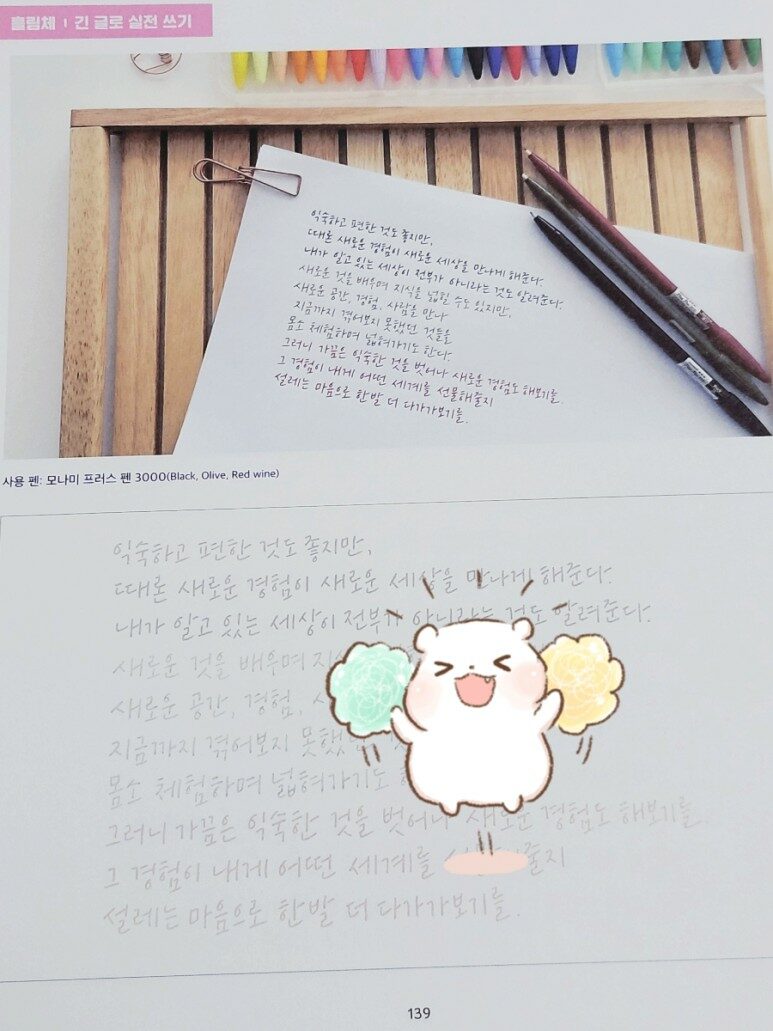 흘림체 | 긴 글로 실전 쓰기
익숙하고 편한 것도 좋지만,
때론 새로운 경험이 새로운 세상을 만나게 해준다.
내가 알고 있는 세상이 전부가 아니라는 것도 알려준다.
새로운 것을 배우며 지식을 넓힐 수도 있지만,
새로운 공간, 경험, 사람을 만나
지금까지 겪어보지 못했던 것들을
몸소 체험하며 넓혀가기도 한다.
그러니 가끔은 익숙한 것을 벗어나 새로운 경험도 해보기를.
그 경험이 내게 어떤 세계를 선물해줄지
설레는 마음으로 한발 더 다가가보기를.
사용 펜: 모나미 프러스 펜 3000(Black, Olive, Red wine)
익숙하고 편한 것도 좋지만,
때론 새로운 경험이 새로운 세상을 만나게 해준다.
내가 알고 있는 세상이 전부가 아니라는 것도 알려준다.
새로운 것을 배우며
새로운 공간, 경험,
지금까지 겪어보지
몸소 체험하며 넓혀가기도
그러니 가끔은 익숙한 것을 벗어나 새로운 경험도 해보기를.
그 경험이 내게 어떤 세계를
설레는 마음으로 한발 더 다가가보기를.
139